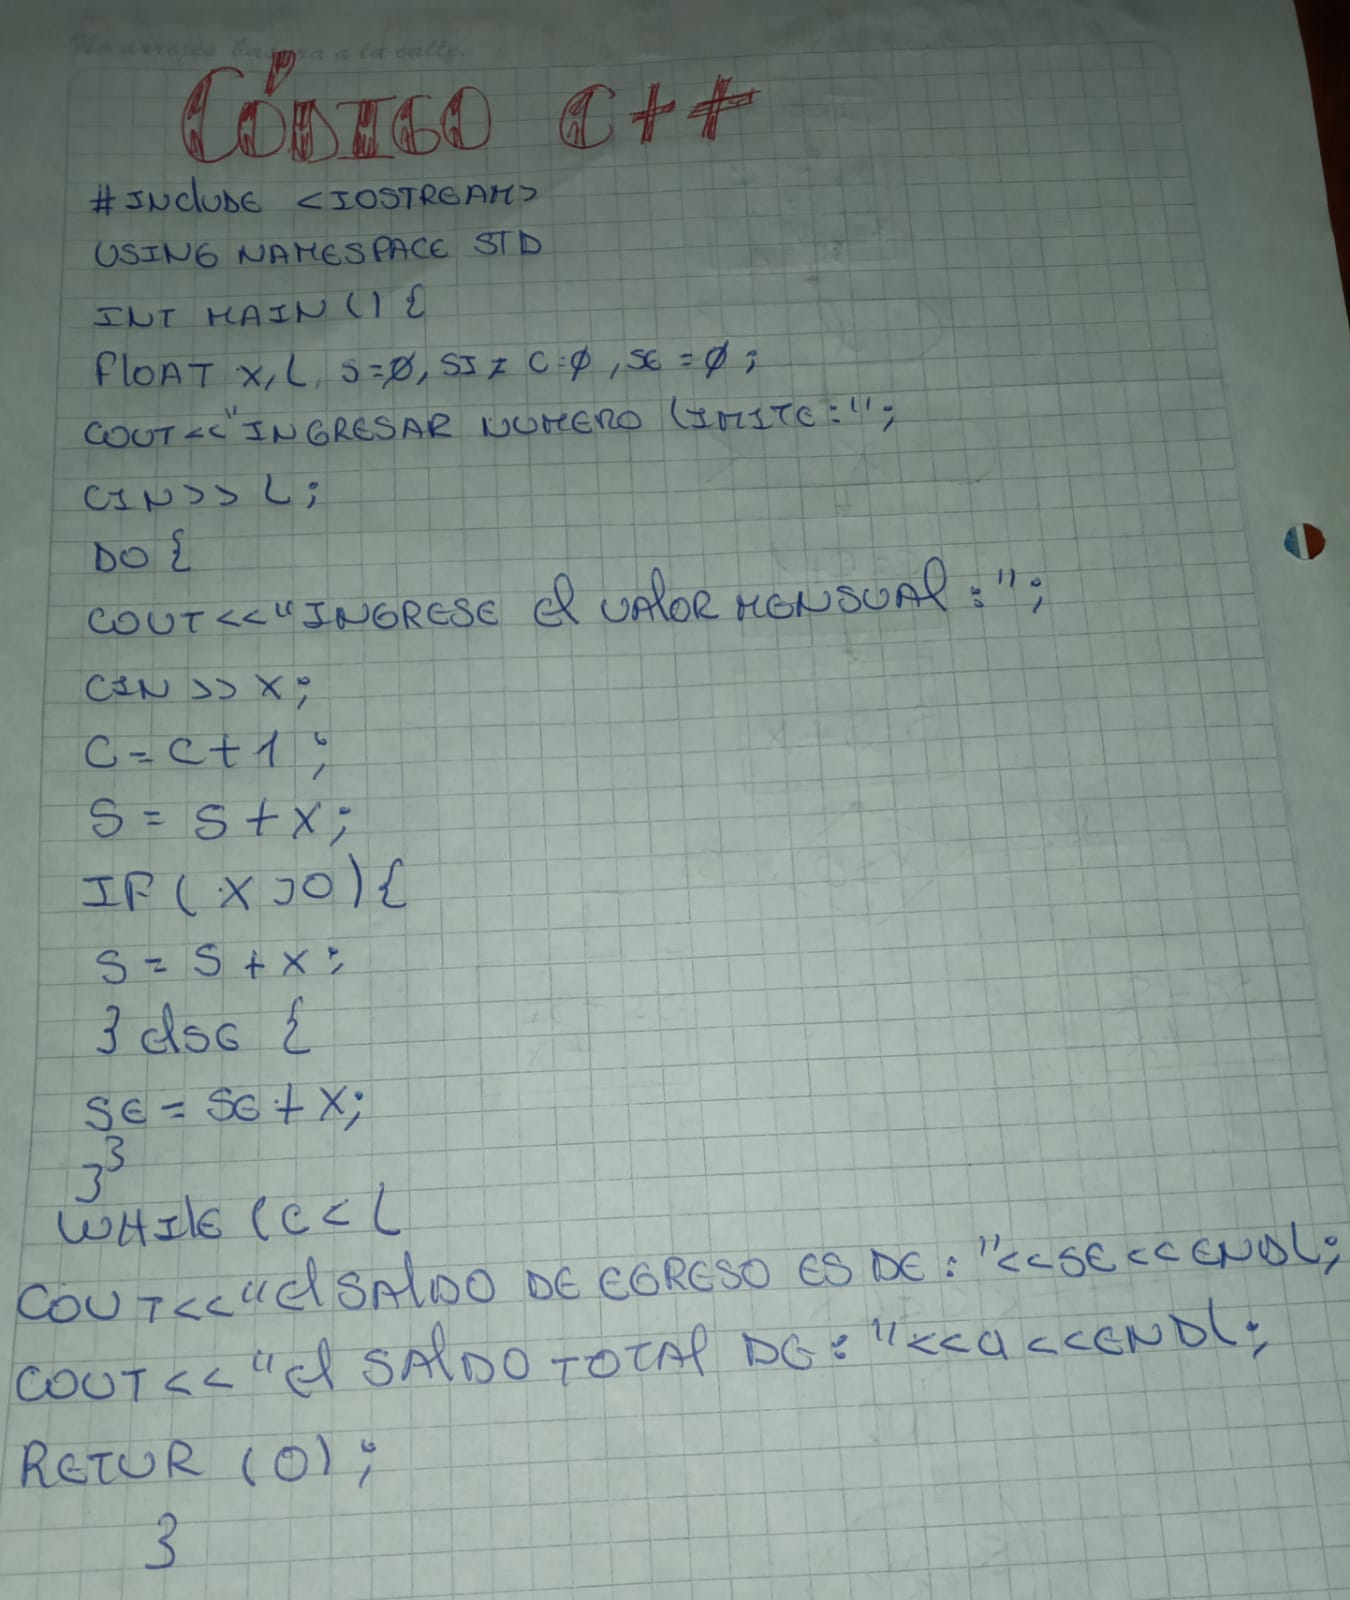 No arrojes basura a la calle.
CÓDIGO C++
#INCLUDE <IOSTREAM>
USING NAMESPACE STD
INT MAIN () {
FLOAT X, L, S=0, SI = C=0, SE = 0;
COUT<<"INGRESAR NUMERO LIMITE:";
CIN>> L;
DO {
COUT<<"INGRESE El VALOR MENSUAL:";
CIN >> X;
C = C+1 ;
S = S + X;
IF ( X >0) {
S = S + X;
} else {
SE = SE + X;
}}
WHILE (C < L
COUT<<"El SALDO DE EGRESO ES DE: "<<SE<<ENDL;
COUT<<"El SALDO TOTAL DE: "<<a<<ENDL;
RETUR (0);
}